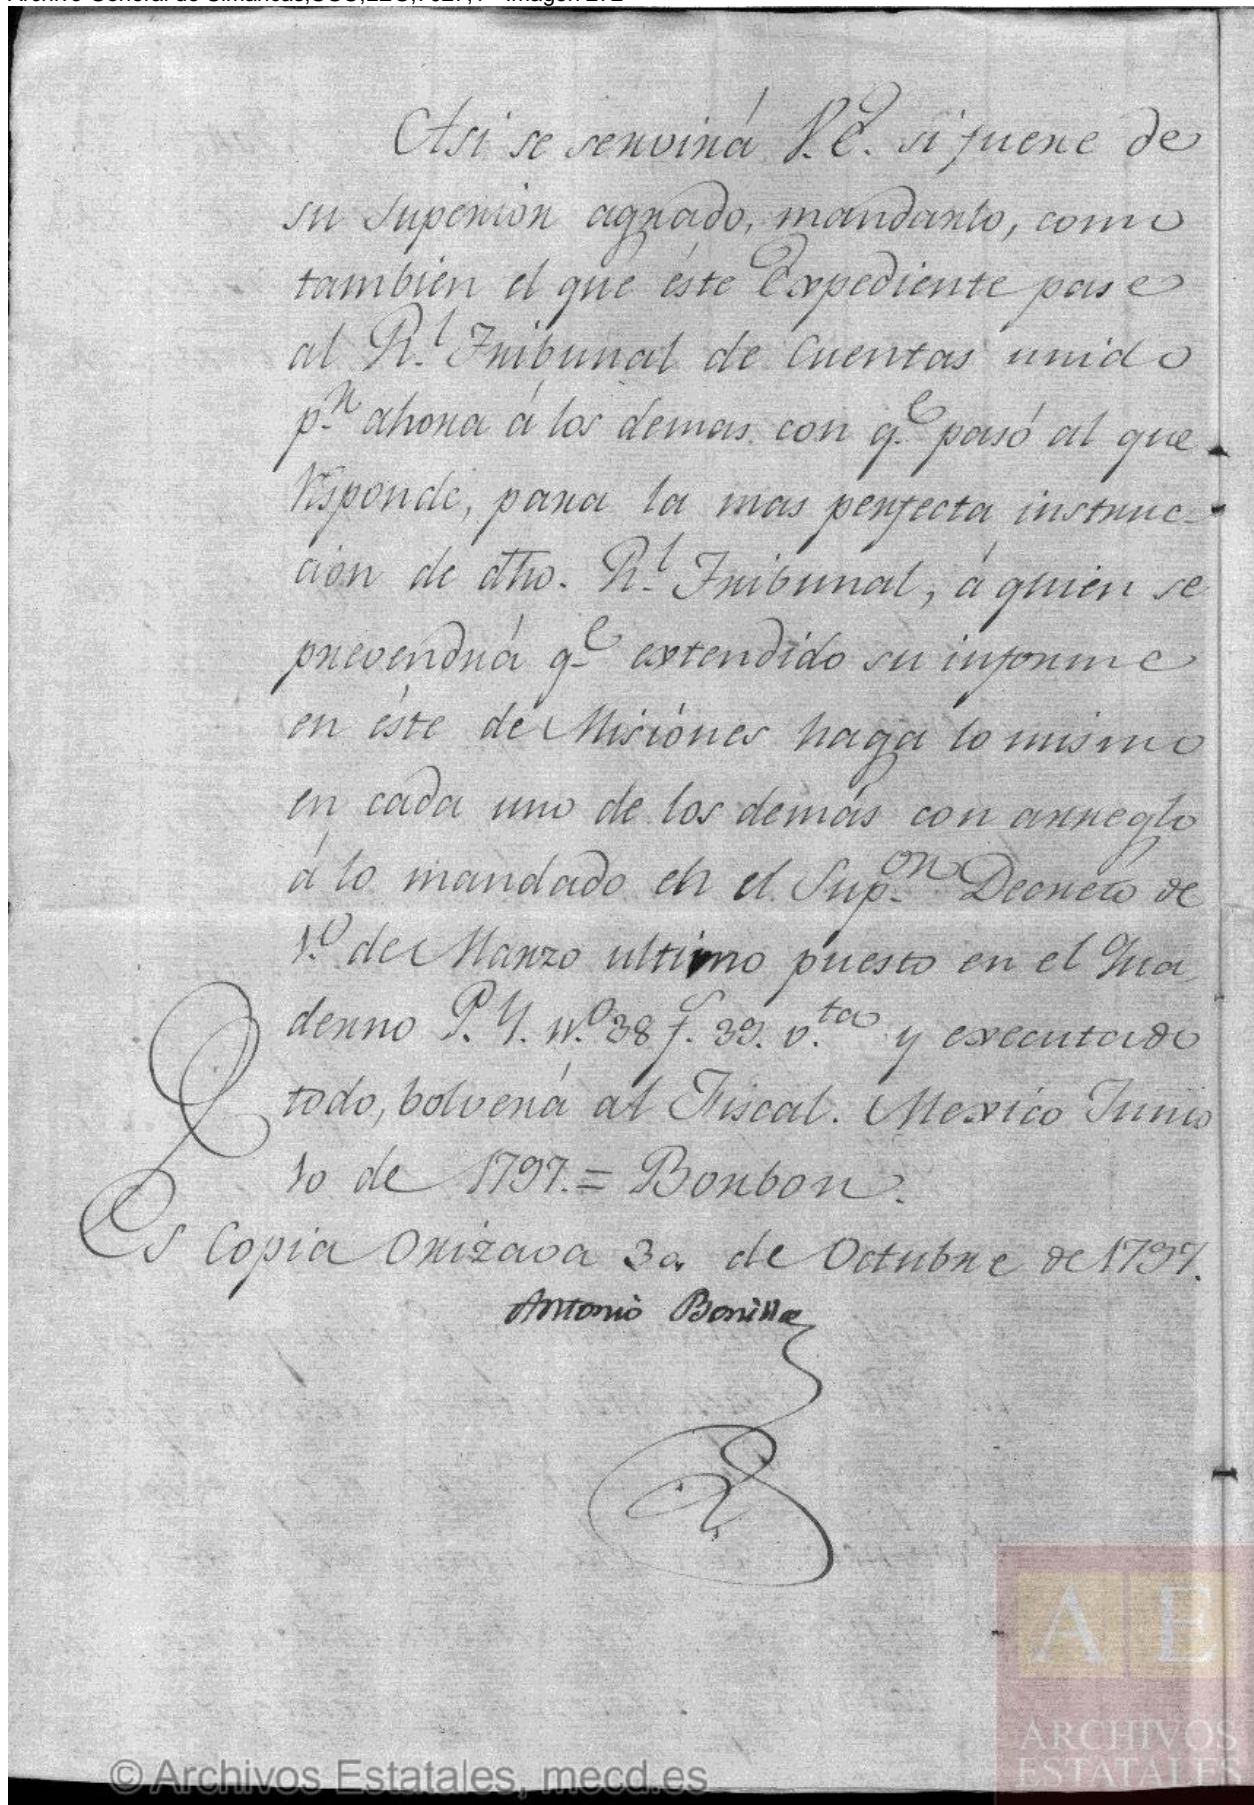 Asi se servirá V.E. si fuere de
su superior agrado, mandarlo, como
tambien el que éste Expediente pase
al R.l Tribunal de Cuentas unido
p.r ahora á los demas con q.e pasó al que
responde, para la mas perfecta instruc-
cion de dho. R.l Tribunal, á quien se
prevendrá q.e extendido su informe
en éste de Misiónes haga lo mismo
en cada uno de los demás con arreglo
á lo mandado en el Sup.or Decreto de
1.o de Marzo ultimo puesto en el Qua
derno P.Y. N.o 38 f. 39. v.ta y executado
todo, bolverá al Fiscal. Mexico Junio
10 de 1797. = Borbon.
Es Copia Orizava 30. de Octubre de 1797.
Antonio Bonilla
A E
ARCHIVOS
ESTATALES
© Archivos Estatales, mecd.es